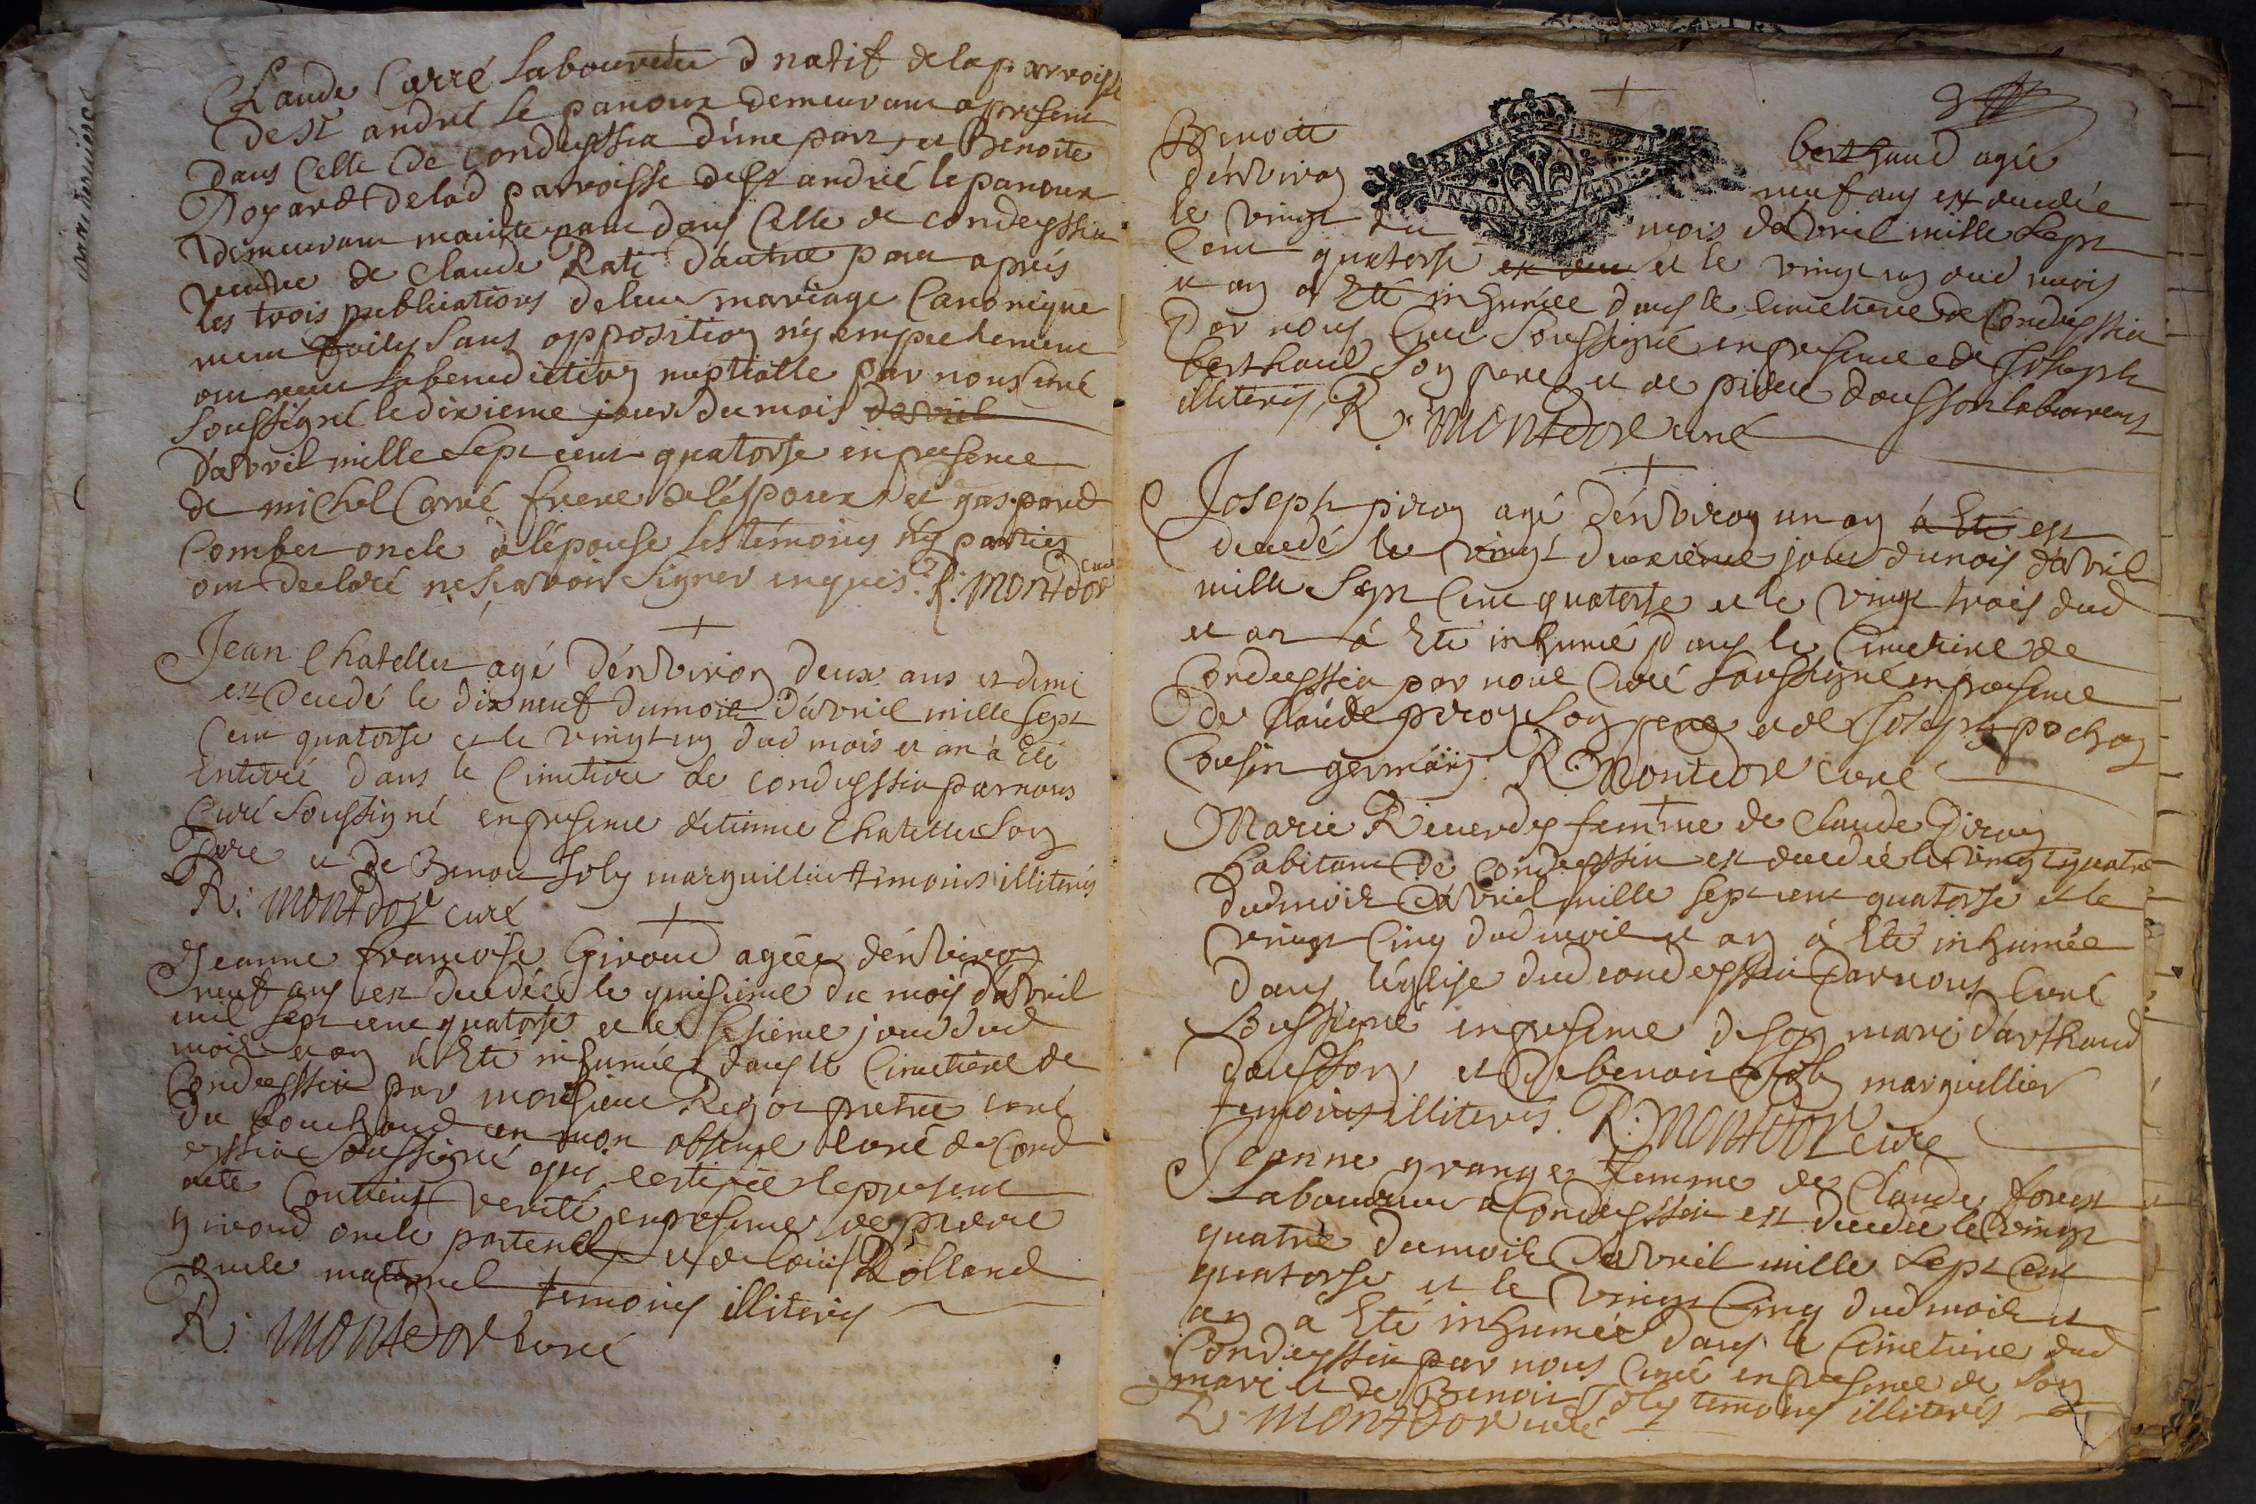 Claude Carré laboureur d natif de la parroisse
de st andré le panoux demeurant a present
dans Celle de condeyssia d'une part, et Benoite
Poyard de lad parroisse de st andrié le panoux
demeurant maintenant dans Celle de condeyssia
veuve de claude Rati d'autre part aprés
les trois publications de leur mariage Canonique
ment faites sans opposition n'y empechement
ont receu la benediction nuptialle par nous curé
soussigné le dixieme jour du mois davril
d'avril mille sept cent quatorse en presence
de michel Carré frere de l'époux et gaspard
Combet oncle à l'épouse les témoins n'y parties
ont declaré ne sçavoir signer enquis. R: Montdor curé
Jean Chatellet agé d'environ deux ans et demi
est decedé le dix neuf du mois d'avril mille sept
Cent quatorse et le vingt un dud mois et an à Eté
Enterré dans le Cimetiere de condeyssia par nous
Curé soussigné en presence d'etienne Chatellet son
Pere et de Benoit Joly marguillier temoins illiterés
R: Montdor curé
Jeanne francoise Giroud agée d'environ
neuf ans est decedée le quinsieme du mois d'avril
mil sept cent quatorse et le sesieme jour dud
mois et an à Eté inhumée dans le Cimetiere de
Condeyssia par monsieur pretre curé
du en mon absence Curé de Cond
eyssia soussigné qui certifie le present
acte Contient verité en presence de pierre
giroud oncle paternel et de loüis Rolland
oncle maternel temoins illiterés
R: Montdor Curé
Benoite berthaud agée
d'environ neuf ans est decedée
le vingt du mois d'avril mille sept
Cent quatorse et le vingt un dud mois
et an a Eté inhumée dans le cimetiere de Condeyssia
Par nous Curé soussigné en presence de Joseph
berthaud son pere et de pierre dousson laboureurs
illiterés, R: Montdor curé
Joseph piron agé d'environ un an à Eté est
decedé le vingt deuxiéme jour du mois d'avril
mille sept Cent quatorse et le vingt trois dud
et an à Eté inhumé dans le Cimetiere de
Condeyssia par nous Curé soussigné en presence
de Claude piron son pere et de Joseph pochon
Cousin germain. R: Montdor curé
Marie femme de Claude Piron
habitant de Condeyssia est decedée le vingt quatre
dud mois d'avril mille sept cent quatorse et le
vingt Cinq dud mois et an à Eté inhumée
dans l'églisse dud condeyssia par nous Curé
soussigné en presence de son mari d'arthaud
dousson, et de benoit Joly marguillier
temoins illiterés. R: Montdor cure
Jeanne grange femme de Claude forest
Laboureur a Condeyssia est decedée le vingt
quatre du mois d'avril mille sept Cent
quatorse et le vingt Cinq dud mois et
an a Eté inhumée dans le Cimetiere dud
Condeyssia par nous Curé en presence de son
mari et de Benoit Joly temoins illiterés
R: Montdor curé